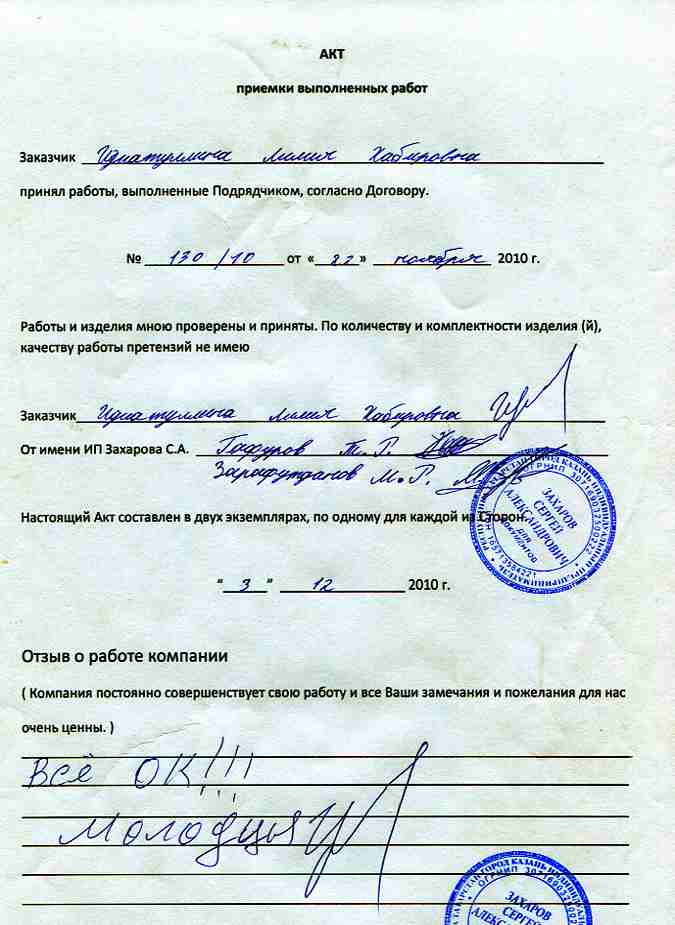 АКТ
приемки выполненных работ
Заказчик Идиатуллина Лилия Хабировна
принял работы, выполненные Подрядчиком, согласно Договору.
№ 130/10 от « 22 » ноября 2010 г.
Работы и изделия мною проверены и приняты. По количеству и комплектности изделия (й),
качеству работы претензий не имею
Заказчик Идиатуллина Лилия Хабировна
От имени ИП Захарова С.А. Гафуров Т.Г.
Зарафутданов М.Г.
Настоящий Акт составлен в двух экземплярах, по одному для каждой из Сторон.
ЗАХАРОВ
СЕРГЕЙ
АЛЕКСАНДРОВИЧ
для
документов
" 3 " 12 2010 г.
Отзыв о работе компании
( Компания постоянно совершенствует свою работу и все Ваши замечания и пожелания для нас
очень ценны. )
Всё ОК!!!
Молодцы
ЗАХАРОВ
СЕРГЕЙ